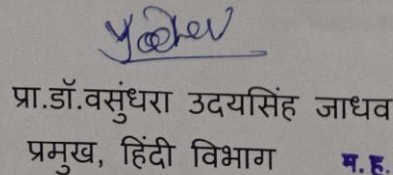 प्रा.डॉ.वसुंधरा उदयसिंह जाधव
प्रमुख, हिंदी विभाग म. ह.